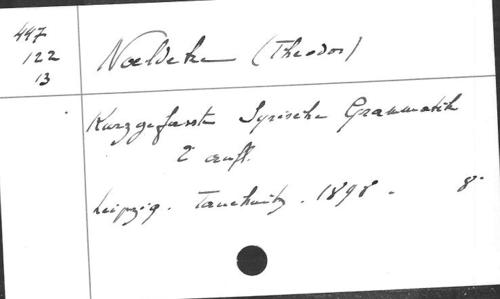 447
122
13
Noeldeke (Theodor)
Kurzgefasste Syrische Grammatik
2 aufl.
Leipzig. Tauchnitz. 1898. 8°